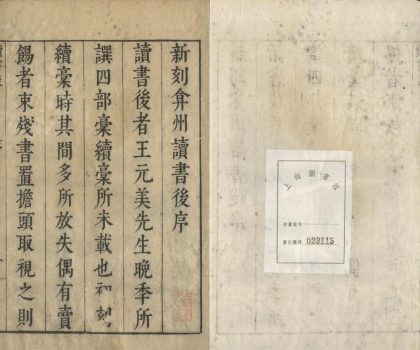 新刻弇州讀書後序
讀書後者王元美先生晩季所
譔四部稾續稾所未載也初刻
續稾時其間多所放失偶有賣
餳者束殘書置擔頭取視之則
上海圖書館
029115